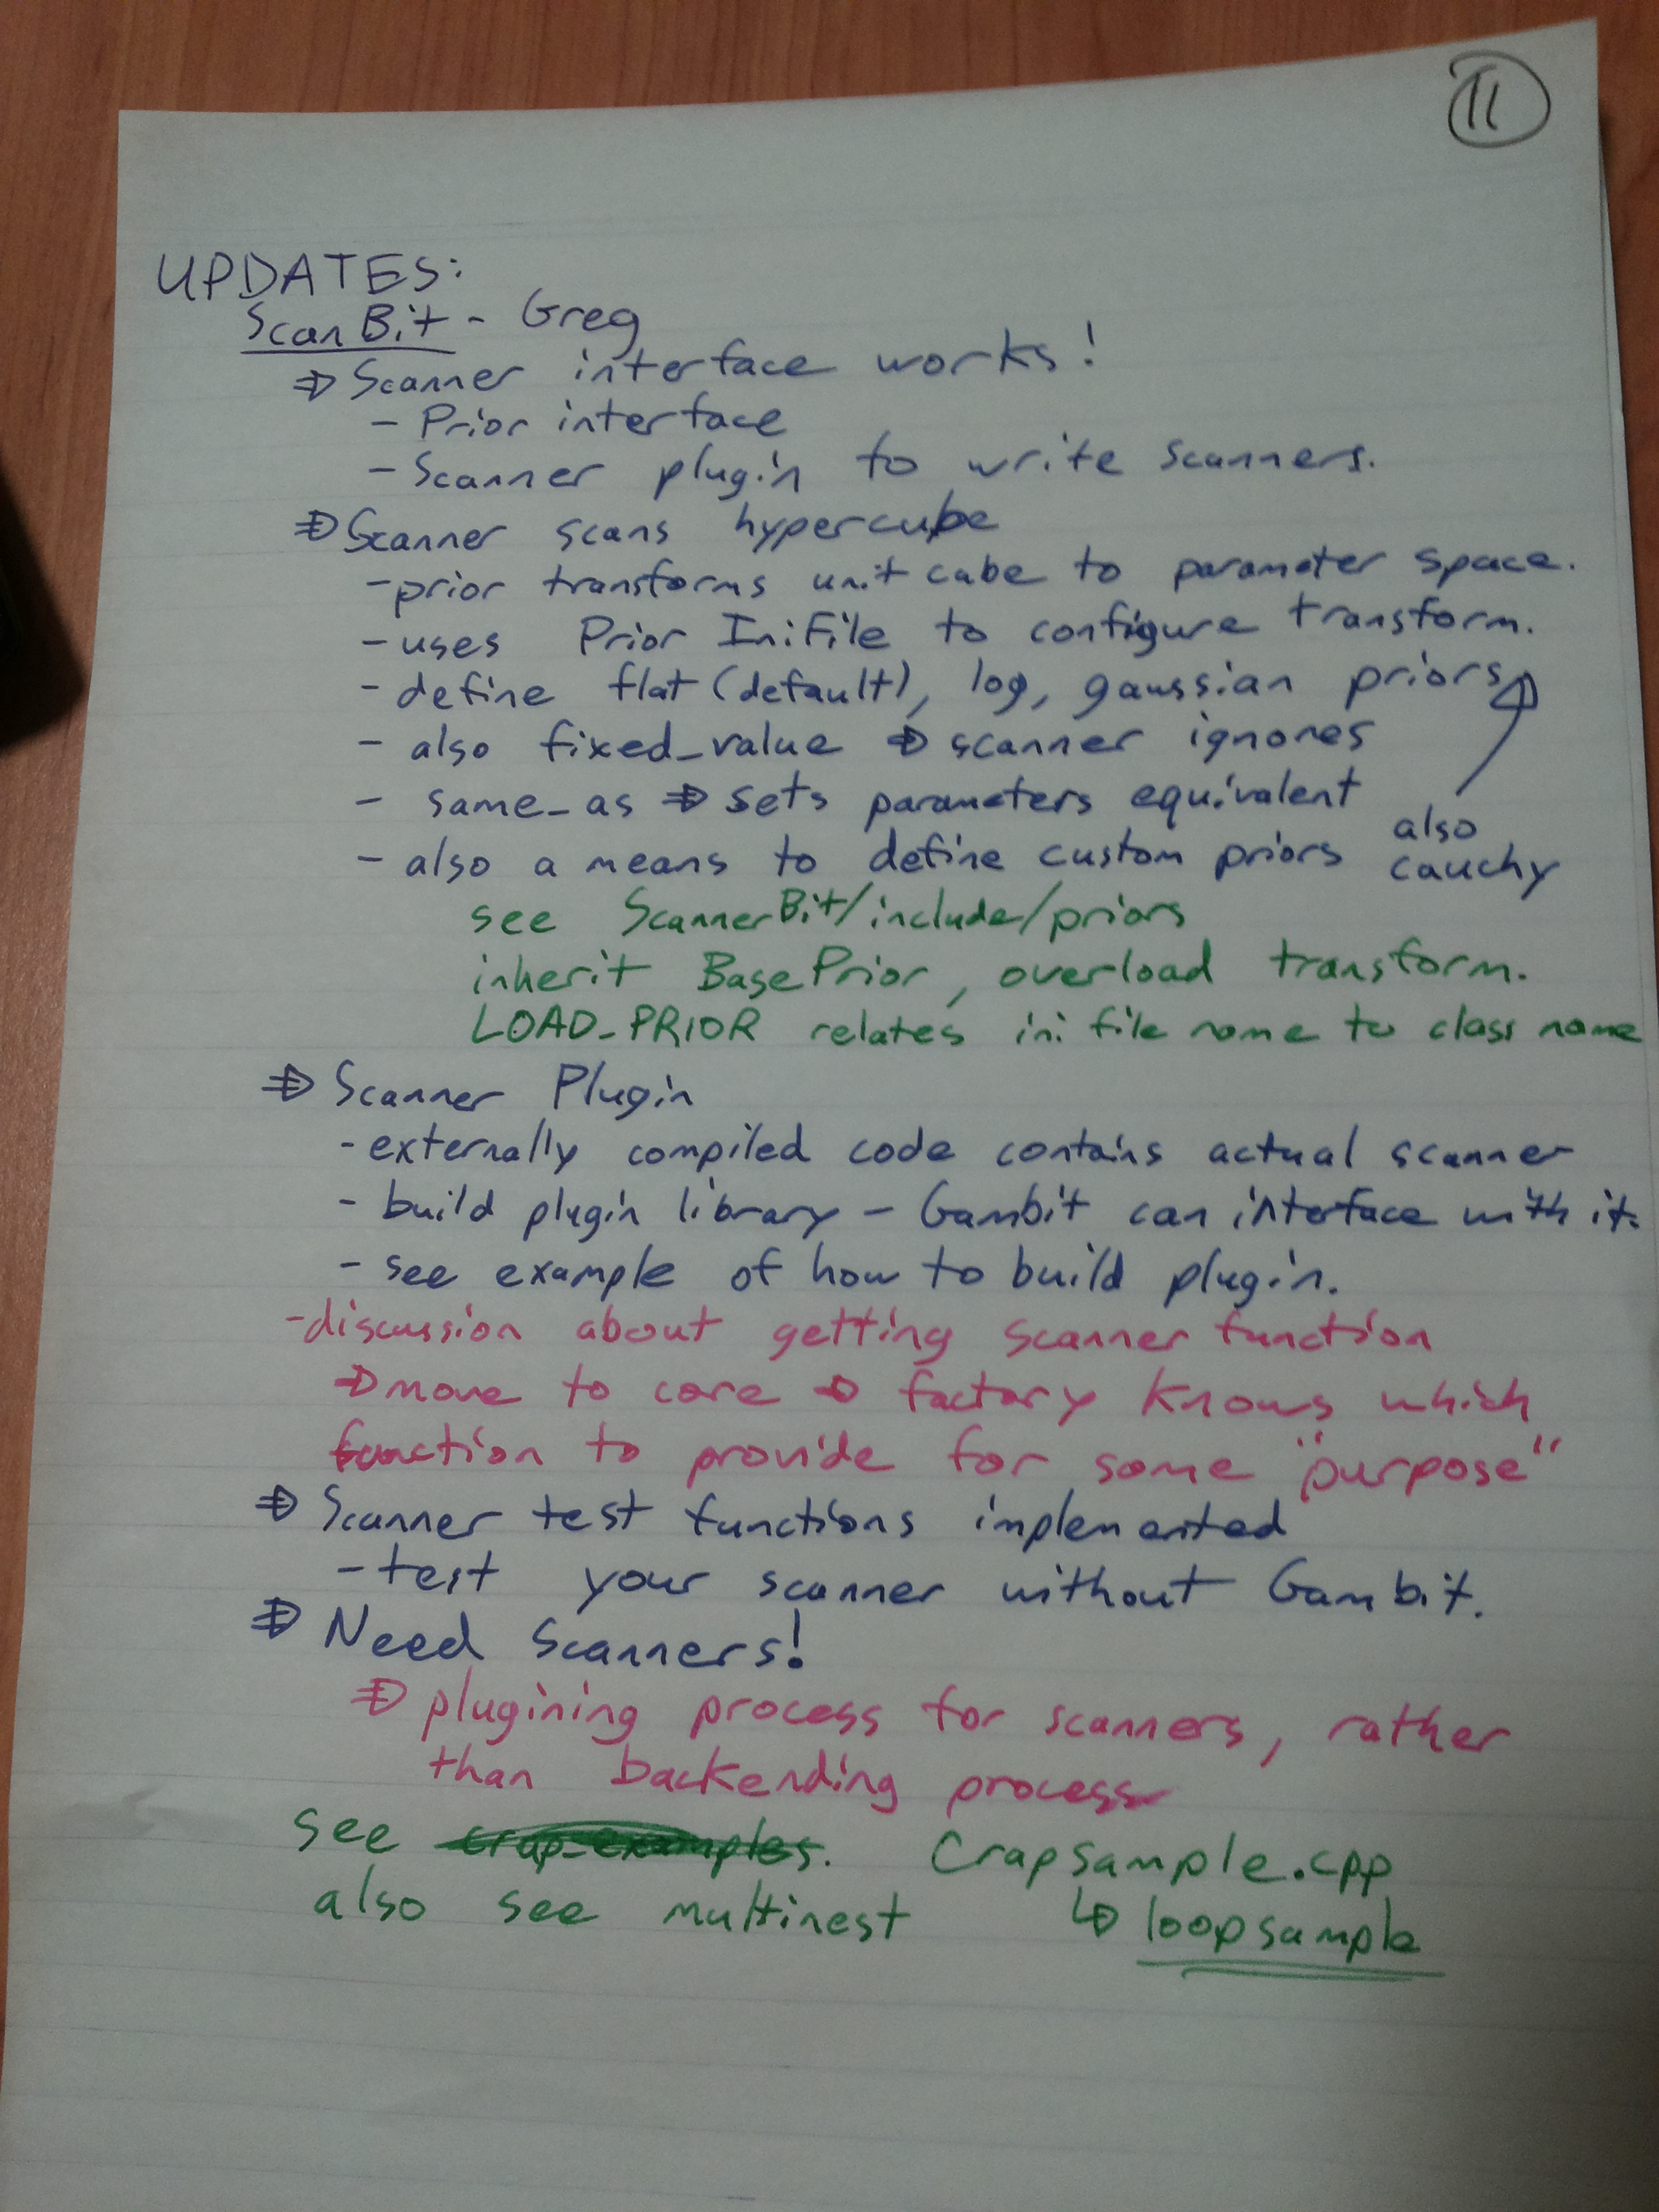 11
UPDATES:
ScanBit - Greg
⇒ Scanner interface works!
- Prior interface
- Scanner plugin to write scanners.
⇒ Scanner scans hypercube
- prior transforms unit cube to parameter space.
- uses Prior IniFile to configure transform.
- define flat (default), log, gaussian priors
- also fixed_value ⇒ scanner ignores
- same_as ⇒ sets parameters equivalent
also
cauchy
- also a means to define custom priors
see ScannerBit/include/priors
inherit BasePrior, overload transform.
LOAD_PRIOR relates ini file name to class name
⇒ Scanner Plugin
- externally compiled code contains actual scanner
- build plugin library - Gambit can interface with it.
- see example of how to build plugin.
- discussion about getting scanner function
⇒ move to core ⇒ factory knows which
function to provide for some "purpose"
⇒ Scanner test functions implemented
- test your scanner without Gambit.
⇒ Need Scanners!
⇒ plugining process for scanners, rather
than backending process
see crap_examples. Crapsample.cpp
also see multinest ↳ loopsample